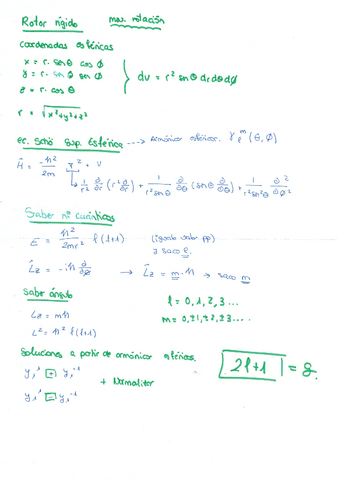 Rotor rígido mov. rotación
coordenadas esféricas
x = r. senθ cos ϕ
y = r. sen θ sen ϕ
z = r. cos θ
dv = r² sen θ dr dθ dϕ
r = √x²+y²+z²
ec. Schö Sup. Esférica ---> Armónico esférico. Yₗᵐ (θ, ϕ)
Ĥ = -ħ²/2m ∇² + V
↳ 1/r² ∂/∂r (r² ∂/∂r) + 1/r² senθ ∂/∂θ (senθ ∂/∂θ) + 1/r² sen²θ ∂²/∂ϕ²
Saber nº cuánticos
E = ħ²/2mr² l(l+1) (igualo valor pp) y saco l.
L̂z = -iħ ∂/∂ϕ → L̂z = m·ħ → saco m
Saber ángulo
l = 0, 1, 2, 3 ...
Lz = mħ
m = 0, ±1, ±2, ±3 ....
L² = ħ² l(l+1)
Soluciones a partir de armónicos esféricos.
|2l+1| = g.
y₁¹ + y₁⁻¹
+ Normalizar
y₁¹ - y₁⁻¹